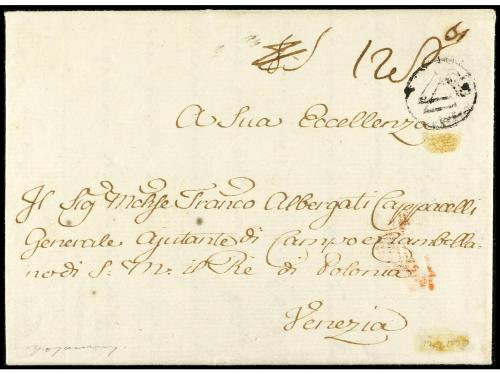 A Sua Eccellenza
Il Sigr Mchse Franco Albergati Cappacelli
Generale Ajutante di Campo e Ciambella-
no di S. M. il Re di Polonia
Venezia